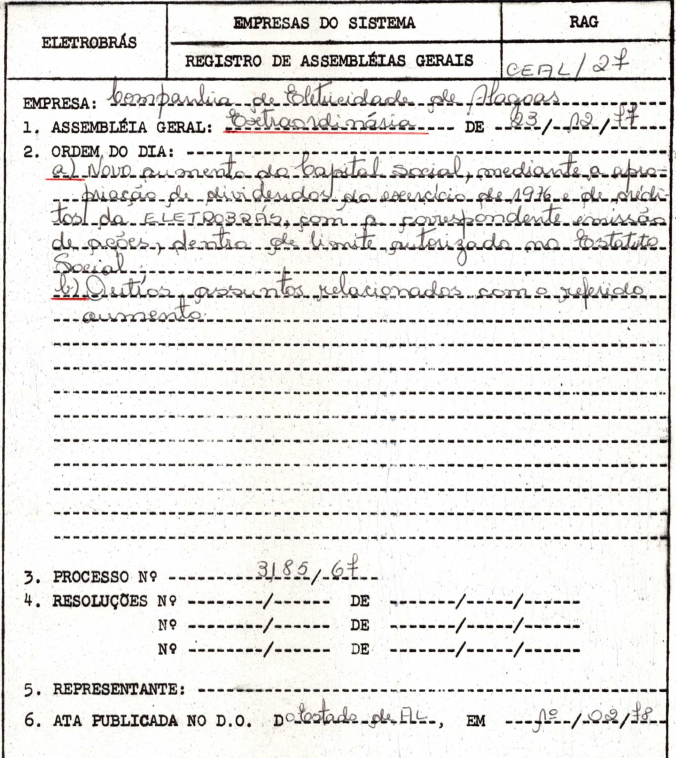 ELETROBRÁS
EMPRESAS DO SISTEMA
RAG
REGISTRO DE ASSEMBLÉIAS GERAIS
CEAL/27
EMPRESA: Companhia de Eletricidade de Alagoas
1. ASSEMBLÉIA GERAL: Extraordinária DE 23/12/77
2. ORDEM DO DIA:
a) Novo aumento do Capital Social, mediante a apro-
priação de dividendos do exercício de 1976 e de crédi-
tos da ELETROBRÁS, com a correspondente emissão
de ações, dentro de limite autorizado no Estatuto
Social;
b) Outros assuntos relacionados com o referido
aumento.
3. PROCESSO Nº 3185/67
4. RESOLUÇÕES Nº ------/------ DE ------/-----/-----
Nº ------/------ DE ------/-----/-----
Nº ------/------ DE ------/-----/-----
5. REPRESENTANTE:
6. ATA PUBLICADA NO D.O. Do Estado de AL, EM 1º/02/78